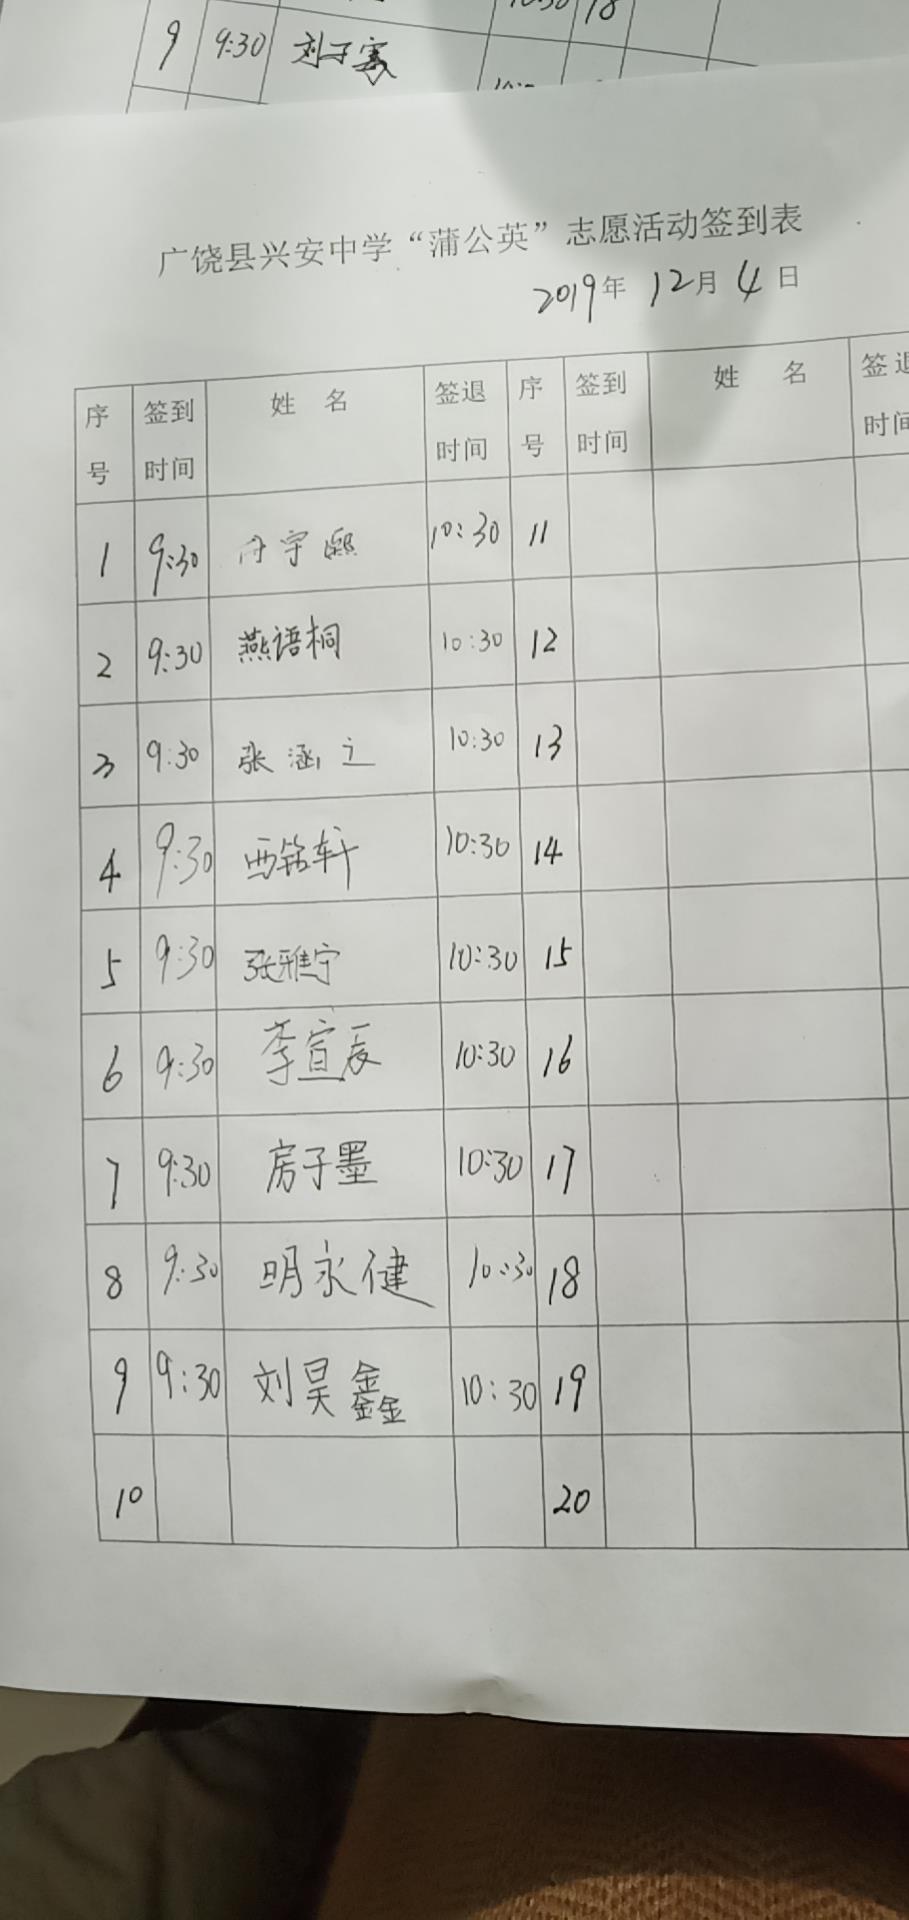 10:30 18
9 9:30 刘子寒
广饶县兴安中学“蒲公英”志愿活动签到表
2019年 12月 4日
序号 签到时间 姓 名 签退时间 序号 签到时间 姓 名 签退时间
1 9:30 宇熙 10:30 11
2 9:30 燕语桐 10:30 12
3 9:30 张涵之 10:30 13
4 9:30 西铭轩 10:30 14
5 9:30 张雅宁 10:30 15
6 9:30 李宣辰 10:30 16
7 9:30 房子墨 10:30 17
8 9:30 明永健 10:30 18
9 9:30 刘昊鑫 10:30 19
10 20